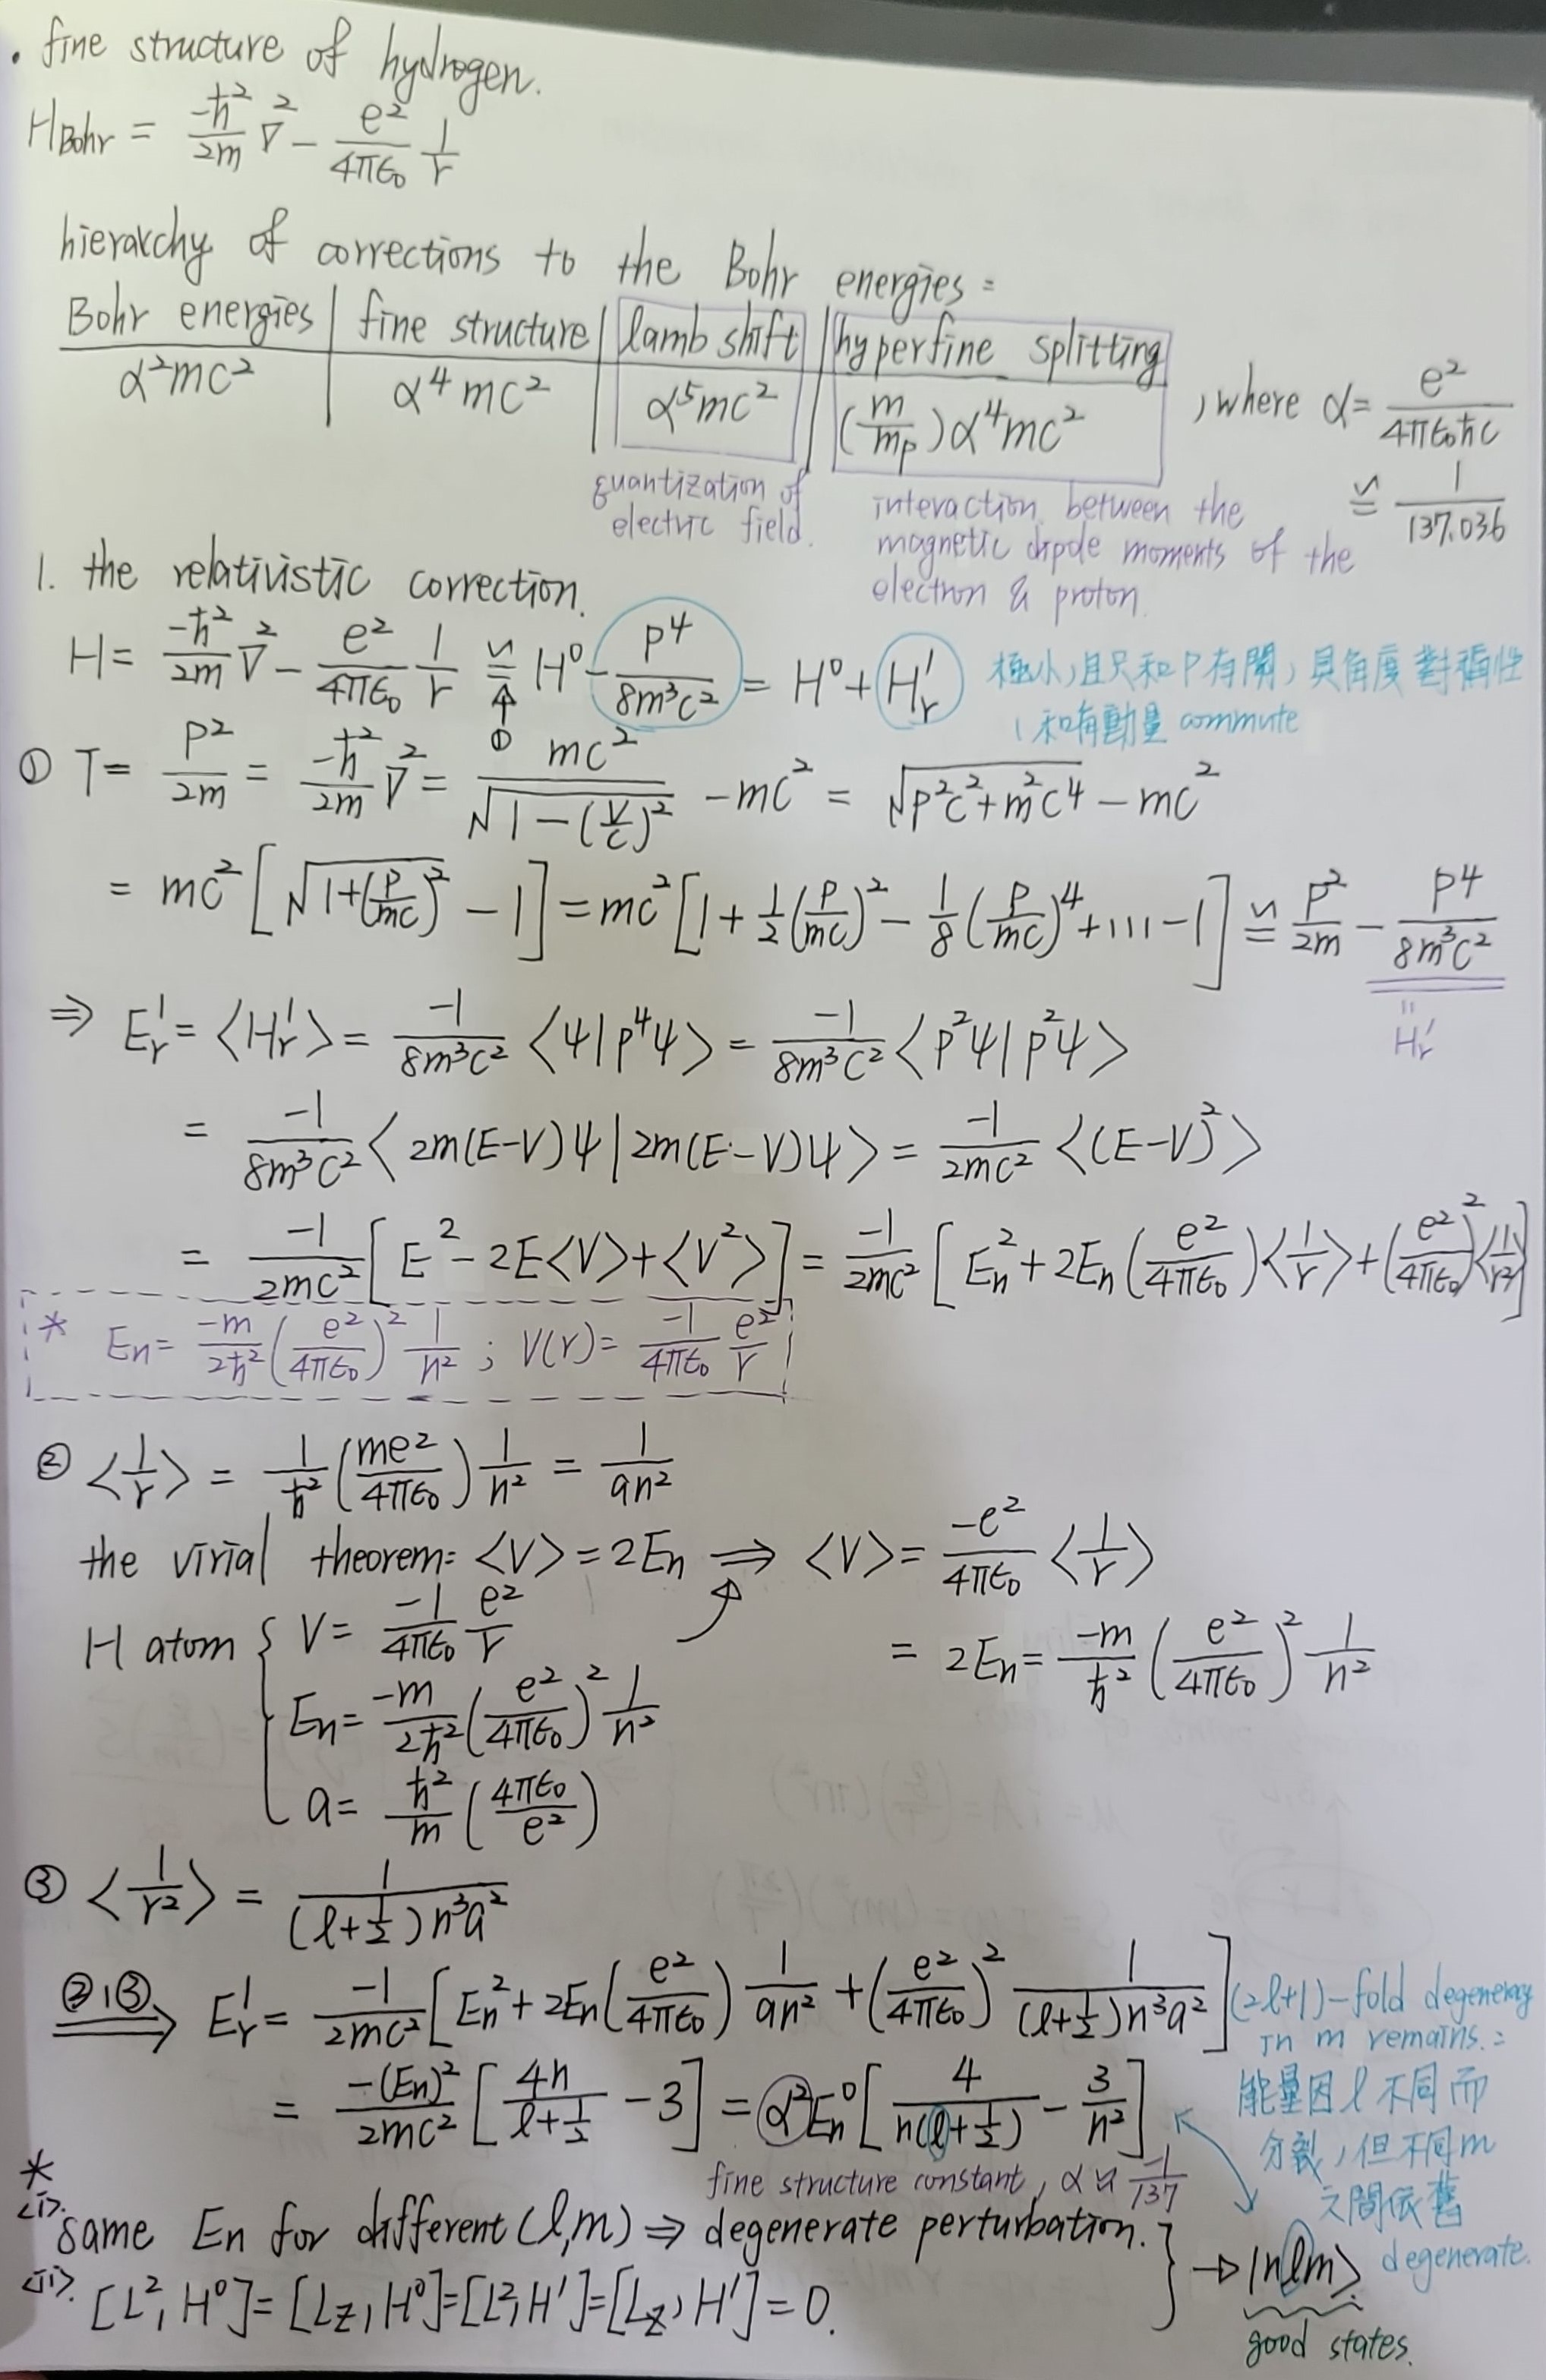 • fine structure of hydrogen.
H_Bohr = -ħ²/2m ∇² - e²/4πε₀ 1/r
hierarchy of corrections to the Bohr energies =
Bohr energies | fine structure | lamb shift | hyperfine splitting
α²mc² | α⁴mc² | α⁵mc² | (m/mp)α⁴mc² , where α = e²/4πε₀ħc
≌ 1/137.036
quantization of
electric field.
interaction between the
magnetic dipole moments of the
electron & proton.
1. the relativistic correction.
H = -ħ²/2m ∇² - e²/4πε₀ 1/r ≌ H⁰ - p⁴/8m³c² = H⁰ + H'r
↑
①
極小,且只和P有關,具角度對稱性
, 和角動量 commute
① T = p²/2m = -ħ²/2m ∇² = mc²/√(1-(v/c)²) - mc² = √(p²c²+m²c⁴) - mc²
= mc² [√(1+(p/mc)²) - 1] = mc² [1 + 1/2(p/mc)² - 1/8(p/mc)⁴ + ... - 1] ≌ p²/2m - p⁴/8m³c²
"
H'r
⇒ E¹r = <H'r> = -1/8m³c² <ψ|p⁴ψ> = -1/8m³c² <p²ψ|p²ψ>
= -1/8m³c² <2m(E-V)ψ|2m(E-V)ψ> = -1/2mc² <(E-V)²>
= -1/2mc² [E² - 2E<V> + <V²>] = -1/2mc² [En² + 2En(e²/4πε₀)<1/r> + (e²/4πε₀)²<1/r²>]
* En = -m/2ħ² (e²/4πε₀)² 1/n² ; V(r) = -1/4πε₀ e²/r
② <1/r> = 1/ħ² (me²/4πε₀) 1/n² = 1/an²
the virial theorem= <V> = 2En ⇒ <V> = -e²/4πε₀ <1/r>
= 2En = -m/ħ² (e²/4πε₀)² 1/n²
H atom { V = -1/4πε₀ e²/r
En = -m/2ħ² (e²/4πε₀)² 1/n²
a = ħ²/m (4πε₀/e²)
③ <1/r²> = 1/(l+1/2)n³a²
②,③ ⇒ E¹r = -1/2mc² [En² + 2En(e²/4πε₀) 1/an² + (e²/4πε₀)² 1/(l+1/2)n³a²]
= -(En)²/2mc² [4n/(l+1/2) - 3] = α²En⁰ [4/n(l+1/2) - 3/n²]
fine structure constant, α ≈ 1/137
(2l+1)-fold degeneray
in m remains. =
能量因l不同而
分裂,但不同m
之間依舊
degenerate.
*
<i>. same En for different (l,m) ⇒ degenerate perturbation.
<ii>. [L², H⁰] = [Lz, H⁰] = [L², H'] = [Lz, H'] = 0.
} → |nlm>
good states.